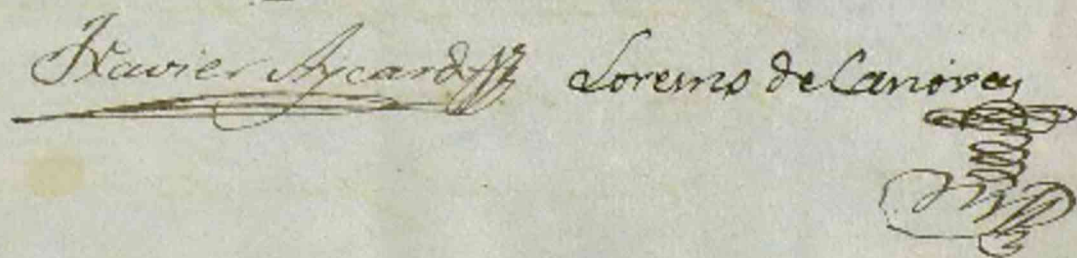 Xavier Aycardi Lorenzo de Canoves